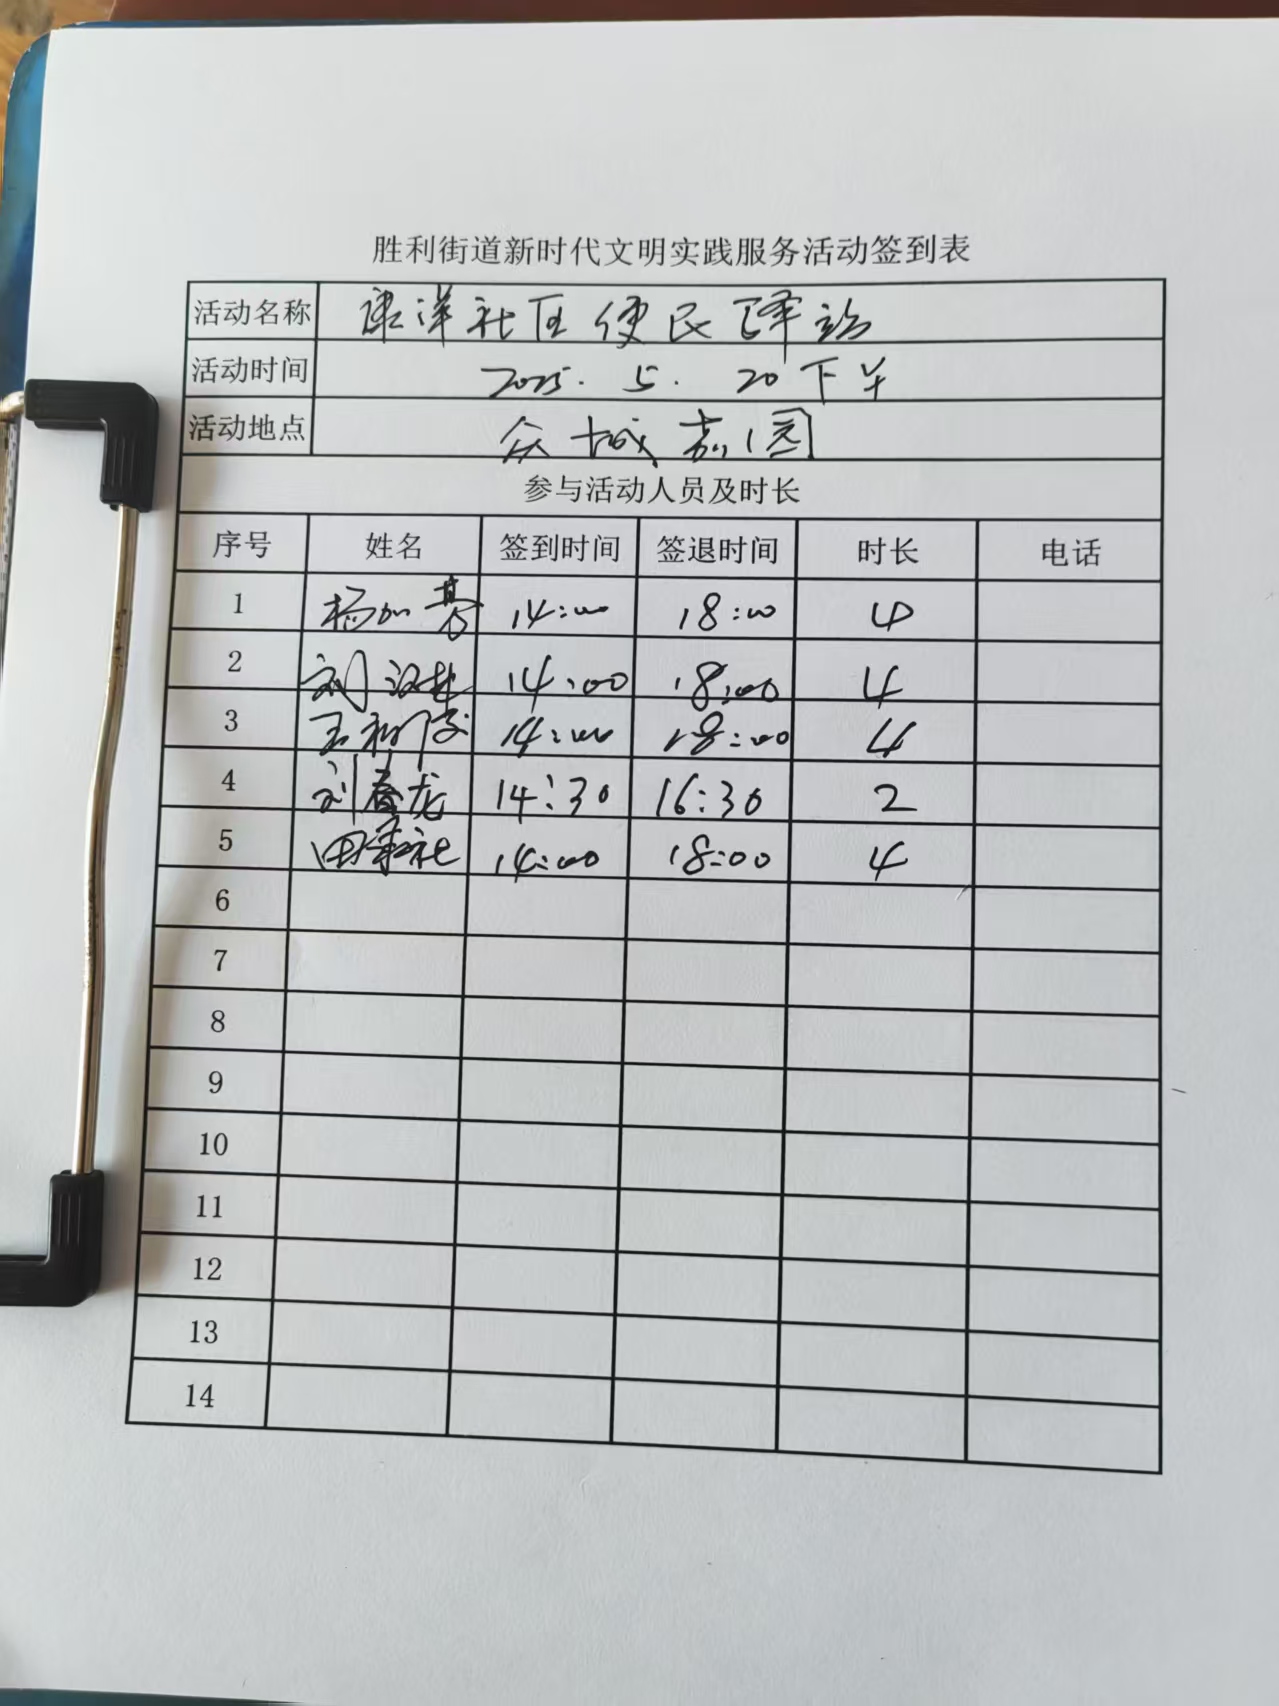 胜利街道新时代文明实践服务活动签到表
活动名称 康洋社区便民驿站
活动时间 2025. 5. 20下午
活动地点 众城嘉园
参与活动人员及时长
序号 姓名 签到时间 签退时间 时长 电话
1 杨加 14:00 18:00 4
2 刘汉 14:00 18:00 4
3 王 14:00 18:00 4
4 刘春龙 14:30 16:30 2
5 田秉社 14:00 18:00 4
6
7
8
9
10
11
12
13
14